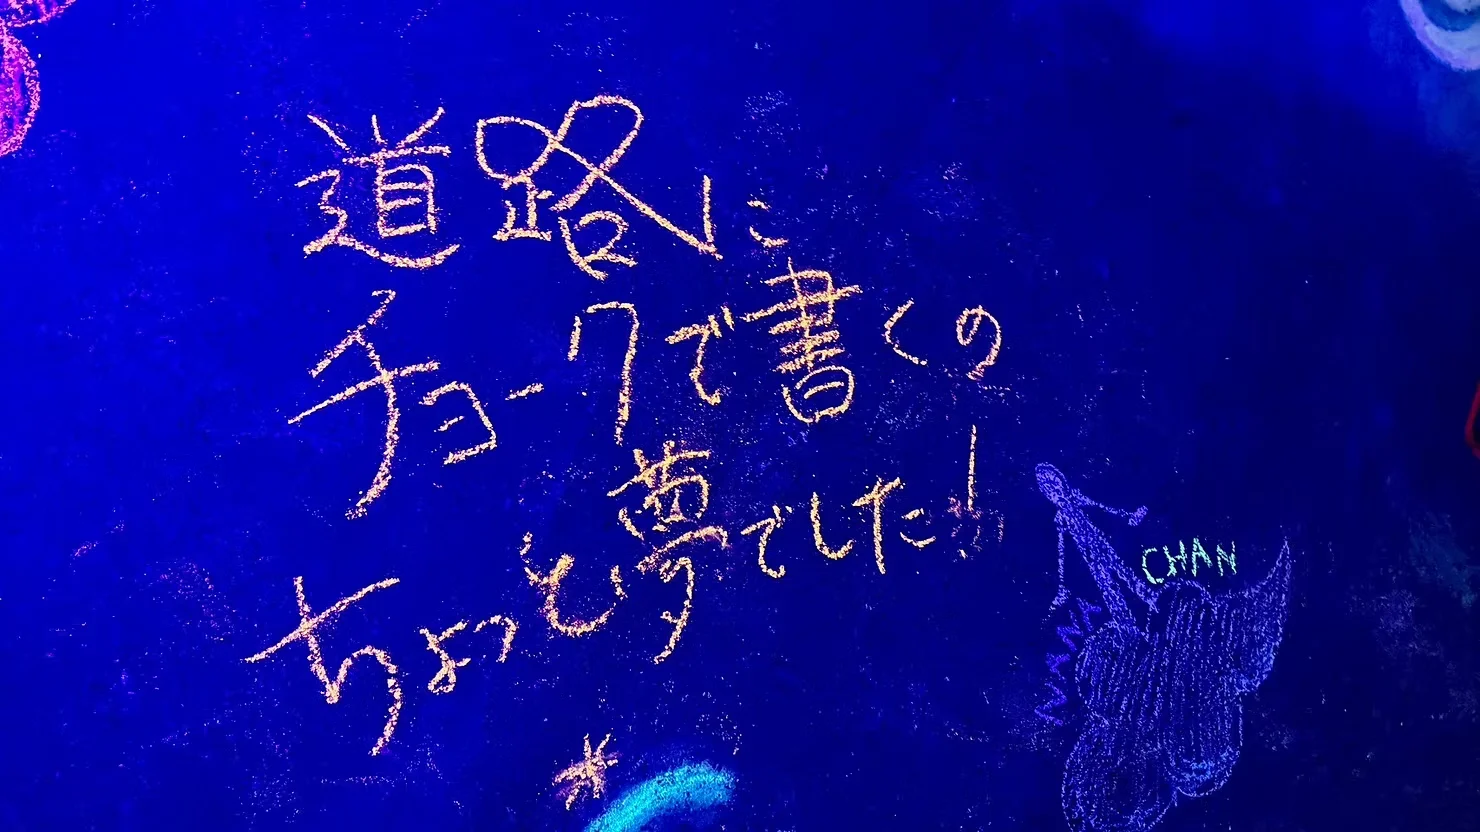 道路に
チョークで書くの
ちょっと夢でした!
CHAN